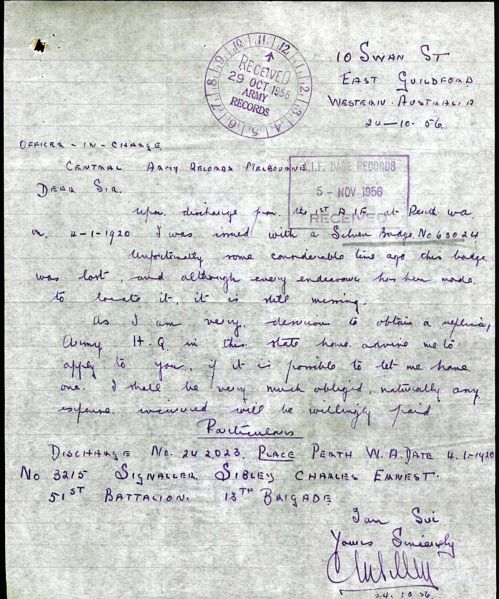 10 SWAN ST
EAST GUILDFORD
WESTERN AUSTRALIA
24-10-56
RECEIVED
29 OCT 1956
ARMY
RECORDS
OFFICER-IN-CHARGE
CENTRAL ARMY RECORDS MELBOURNE
A.I.F. BASE RECORDS
5 - NOV 1956
RECEIVED
DEAR SIR.
Upon discharge from the 1st A.I.F. at Perth WA
on 4-1-1920 I was issued with a Silver Badge, No 63024
Unfortunatly some considerable time ago this badge
was lost, and although every endeavour has been made
to locate it, it is still missing.
As I am very desirous to obtain a replica,
Army H.Q in this state have advise me to
apply to you, if it is possible to let me have
one. I shall be very much obliged, naturally any
expense incurred will be willingly paid
Particulars
DISCHARGE No. 242023. PLACE PERTH W.A. DATE 4.1.1920
No 3215 SIGNALLER SIBLEY CHARLES ERNEST.
51ST BATTALION. 13TH BRIGADE
I am Sir
Yours Sincerely
24.10.56